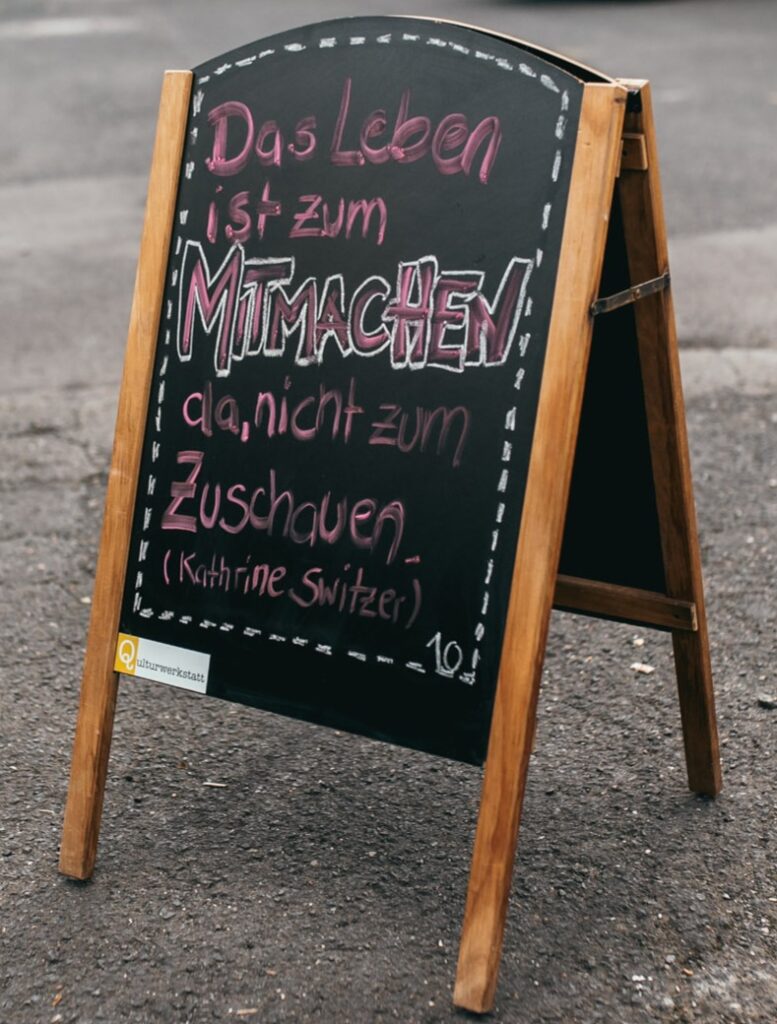 Das Leben
ist zum
MITMACHEN
da, nicht zum
Zuschauen.
(Kathrine Switzer)
10
Qulturwerkstatt